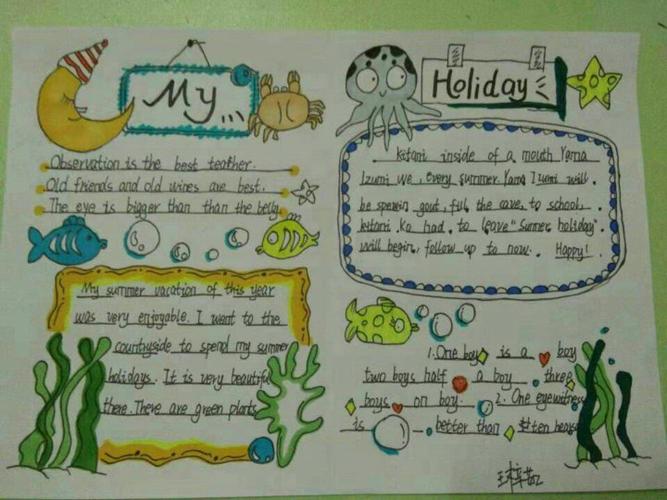 My...
Observation is the best teather.
Old friends and old wines are best.
The eye is bigger than than the belly
My summer vacation of this year
was very enjoyable. I went to the
countryside to spend my summer
holidays. It is very beautiful
there. There are green plants
Holiday
kitani inside of a mouth Yama
Izumi we, every summer. Yama Izumi will.
be spewin gout, fill the cave, to school.
kitani. Ko had. to leave "Summer holiday".
will begin, follow up to now. Happy!
1. One boy is a boy
two boys half a boy three
boys on boy. 2. One eyewitness
is better than ten hears